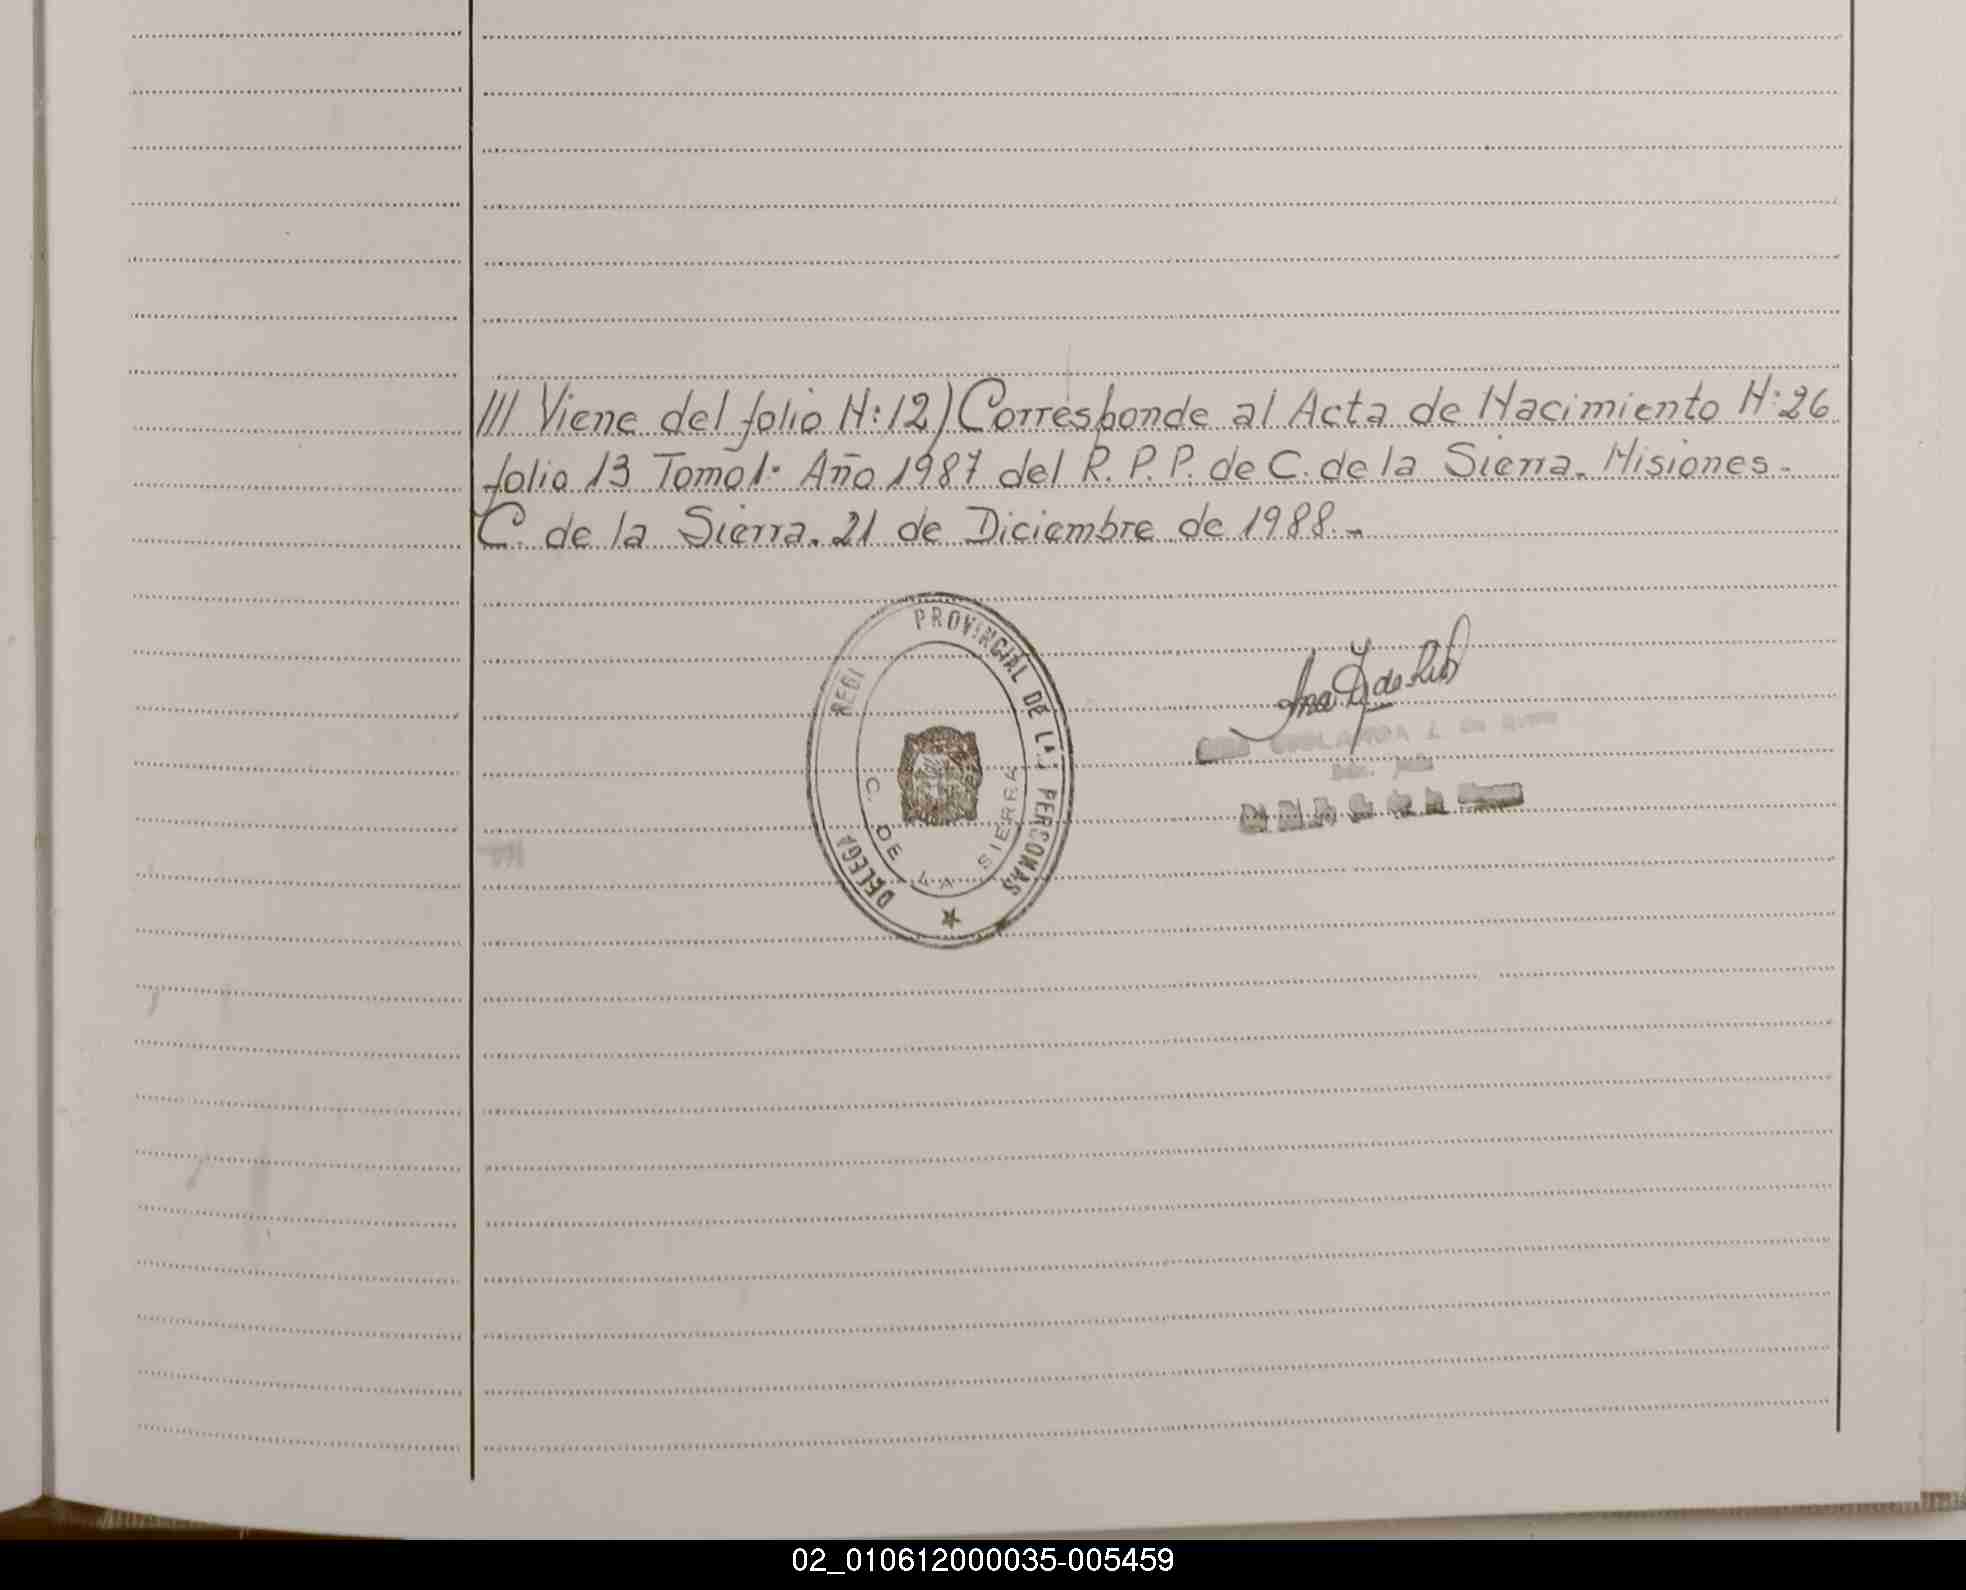 /// Viene del folio N:12) Corresponde al Acta de Nacimiento N:26
folio 13 Tomo 1: Año 1987 del R.P.P. de C. de la Sierra. Misiones.
C. de la Sierra. 21 de Diciembre de 1988.-
REGI PROVINCIAL DE LAS PERSONAS
DELEGA
C. DE LA SIERRA
02_010612000035-005459